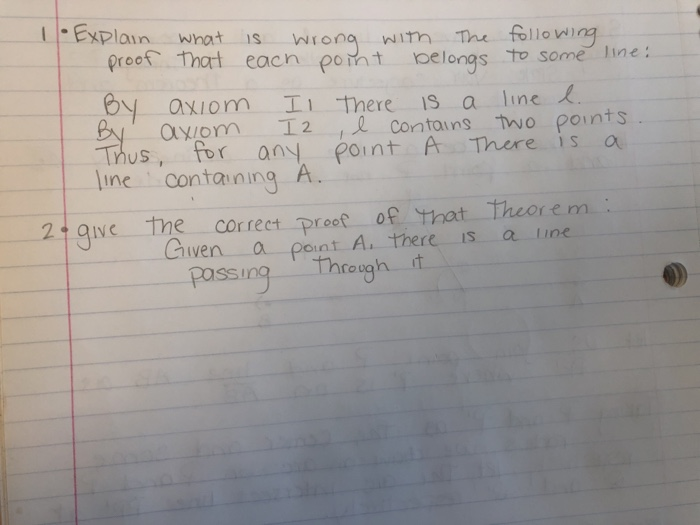 1 • Explain what is wrong with The following
proof that each point belongs to some line:
By axiom I1 there is a line l.
By axiom I2, l contains two points.
Thus, for any point A There is a
line containing A.
2 • give the correct proof of that Theorem:
Given a point A, there is a line
passing through it